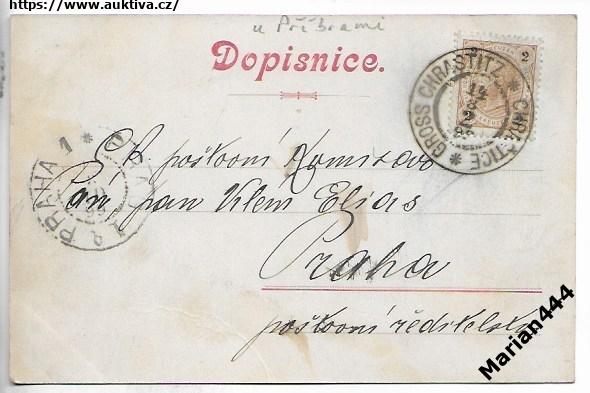 https://www.auktiva.cz/
u Příbrami
Dopisnice.
2
GROSS CHRASTITZ * CHRAŠTICE *
PRAHA 1 *
C. k. poštovní Komisař
Pan, pan Vilém Eliáš
Praha
poštovní ředitelství
Marian444